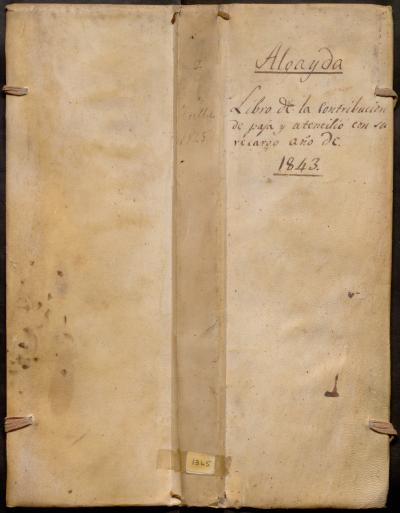 Alcayda
Libro de la contribucion
de paja y utencilio con su
recargo año de
1843.
1345